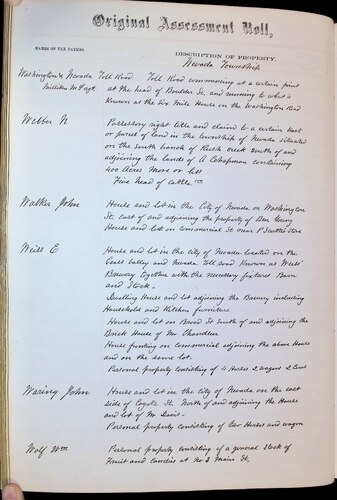 Original Assessment Roll,
NAMES OF TAX PAYERS.
DESCRIPTION OF PROPERTY.
Nevada Township
Washington & Nevada Toll Road Toll Road commencing at a certain point
at the head of Boulder St. and running to what is
known as the Six Mile House on the Washington Road
Webber N Possessory right title and claim to a certain tract
or parcel of land in the township of Nevada situated
on the south branch of Rush creek south of and
adjoining the lands of A Chapman containing
400 Acres More or less
Five head of cattle
Walker John House and lot in the City of Nevada on Washington
St. east of and adjoining the property of Ben Grong
House and lot on Commercial St near P Store
Weiss E House and lot in the city of Nevada located on the
Valley and Nevada Toll road Known as Weiss'
Brewery together with the necessary fixtures Barn
and Stock.
Dwelling House and lot adjoining the Brewery including
Household and Kitchen furniture
House and lot on Broad St south of and adjoining the
Brick House of Mr Chandler
House fronting on Commercial adjoining the above House
and on the same lot.
Personal property consisting of 4 Horses 2 wagons 2 Cows
Waring John House and lot in the city of Nevada on the east
side of Coyote St. North of and adjoining the House
and lot of Mr Davis.
Personal property consisting of two Horses and wagon
Wolf Wm Personal property consisting of a general stock of
Fruit and Candies at no 3 Main St.